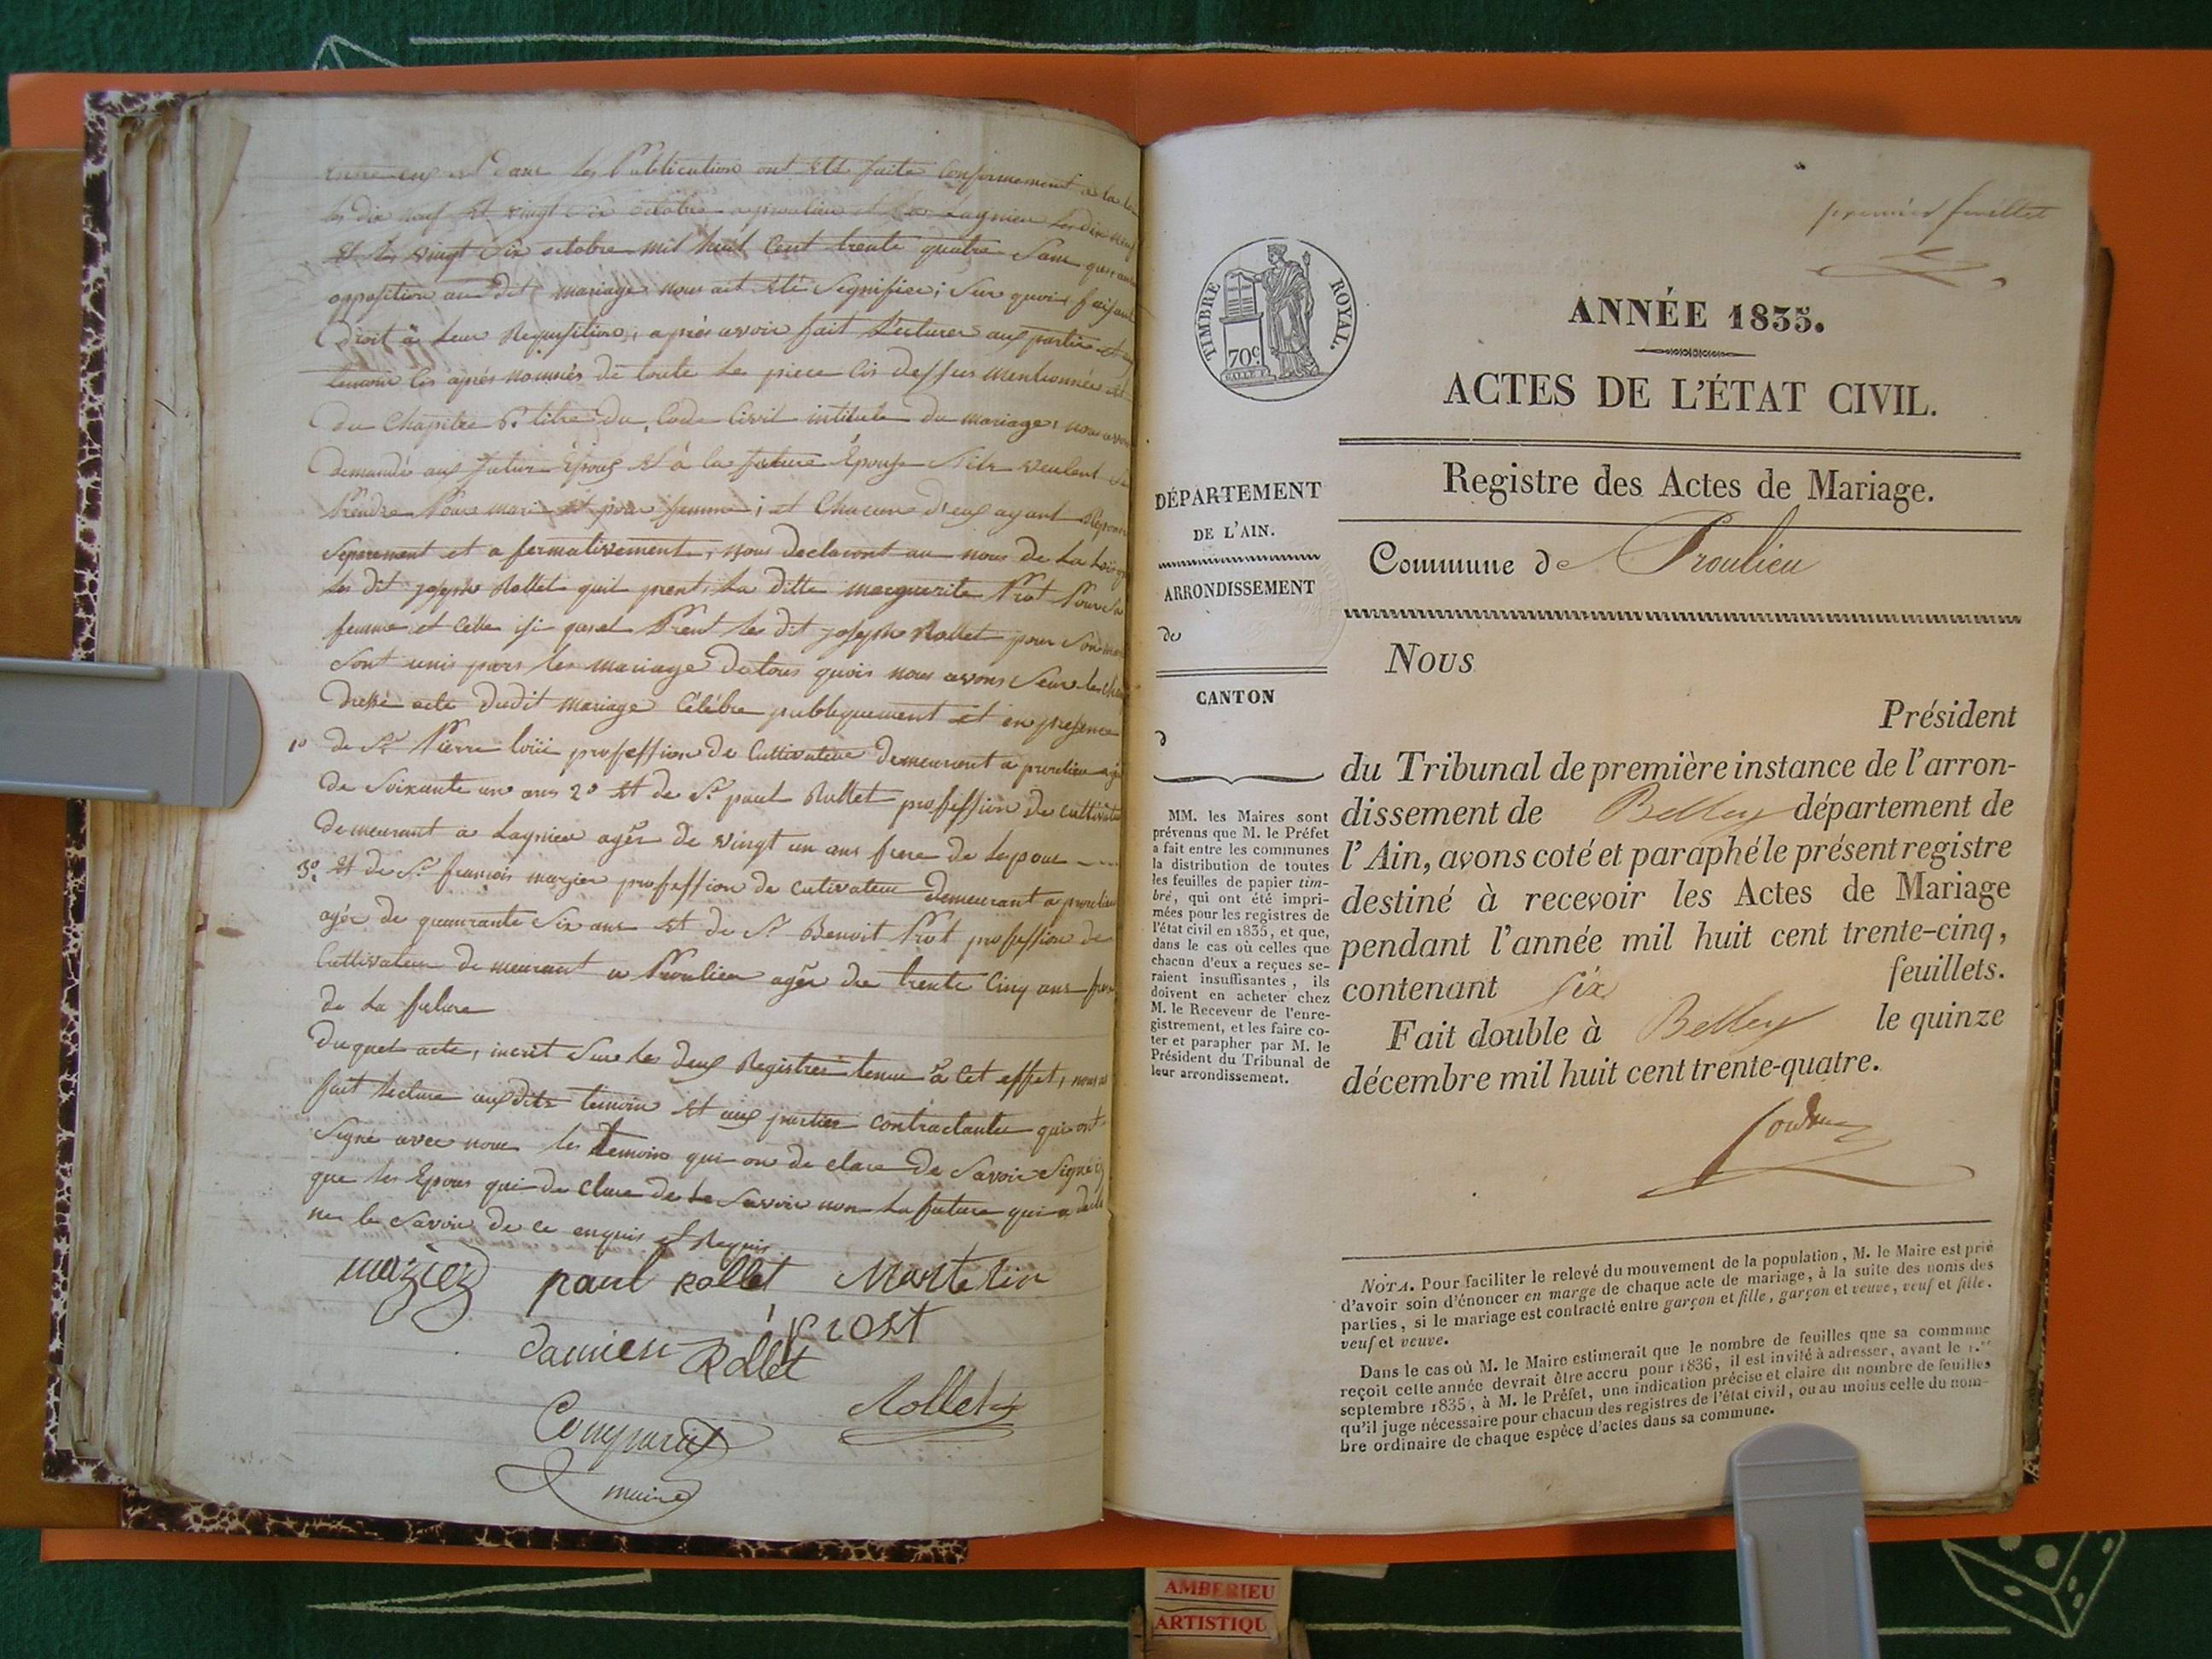 les Publication ont été faite Conformement a la loi
les dix neuf et vingt six octobre a proulieu et a Lagnieu les dix neuf
et les vingt six octobre mil huit Cent trente quatre Sans que
opposition au dit mariage nous ait été Signifiée; Sur quoi faisant
Droit à leur Requisition, après avoir fait Lecture aux partie et
temoin Cis après nommés de toute les piece Cis dessus mentionnée et
du Chapitre 6e titre du Code Civil intitulé du mariage, nous avons
Demandé aux futur Epoux et à la future Epouse S'ils veulent Se
Prendre Pour mari et pour femme; et Chacun d'eux ayant Repondu
Separement et a fermativement, nous declaront au nom de La Loi que
les dit joseph Rollet quil prent La ditte marguerite Prot Pour Sa
femme et Celle isi Prent les dit joseph Rollet pour Son mari
Sont unis pars les mariage De tous quois nous avons Seur les Champ
Dressé acte dudit mariage Célébre publiquement et en presence
1o de Sr Pierre profession de Cultivateur demeurant a proulieu agé
de Soixante un ans 2o et de Sr paul Rollet profession de cultivateur
demeurant a Lagnieu agér de vingt un ans frere de Lepoux
3o et de Sr francois mazier profession de cutivateur demeurant a proulieu
agér de quaurante Six ans et de Sr Benoit Prot profession de
Cultivateur demeurant a Proulieu agér de trente Cinq ans frere
de La future
Duquel acte, incrit Sur les deux Registres tenue à Cet effet, nous
fait Lecture auxdits temoin et aux parties contractantes qui ont
Signé avec nous les temoin qui on de clare de Savoir Signé
que les Epoux qui de Clare de Le Savoir non La future qui a
ne le Savoir de ce enquis et Requis
maziez paul rollet Mantelin
prost
damien Rollet
Rollet
Comparat
maire
premier feuillet
TIMBRE ROYAL.
70c.
ANNÉE 1835.
ACTES DE L'ÉTAT CIVIL.
Registre des Actes de Mariage.
Commune de Proulieu
DÉPARTEMENT
DE L'AIN.
ARRONDISSEMENT
de
CANTON
d
MM. les Maires sont
prévenus que M. le Préfet
a fait entre les communes
la distribution de toutes
les feuilles de papier tim-
bré, qui ont été impri-
mées pour les registres de
l'état civil en 1835, et que,
dans le cas où celles que
chacun d'eux a reçues se-
raient insuffisantes, ils
doivent en acheter chez
M. le Receveur de l'enre-
gistrement, et les faire co-
ter et parapher par M. le
Président du Tribunal de
leur arrondissement.
Nous
Président
du Tribunal de première instance de l'arron-
dissement de Belley département de
l'Ain, avons coté et paraphé le présent registre
destiné à recevoir les Actes de Mariage
pendant l'année mil huit cent trente-cinq,
contenant six feuillets.
Fait double à Belley le quinze
décembre mil huit cent trente-quatre.
NOTA. Pour faciliter le relevé du mouvement de la population, M. le Maire est prié
d'avoir soin d'énoncer en marge de chaque acte de mariage, à la suite des noms des
parties, si le mariage est contracté entre garçon et fille, garçon et veuve, veuf et fille,
veuf et veuve.
Dans le cas où M. le Maire estimerait que le nombre de feuilles que sa commune
reçoit cette année devrait être accru pour 1836, il est invité à adresser, avant le 1.er
septembre 1835, à M. le Préfet, une indication précise et claire du nombre de feuilles
qu'il juge nécessaire pour chacun des registres de l'état civil, ou au moins celle du nom-
bre ordinaire de chaque espèce d'actes dans sa commune.
AMBERIEU
ARTISTIQU